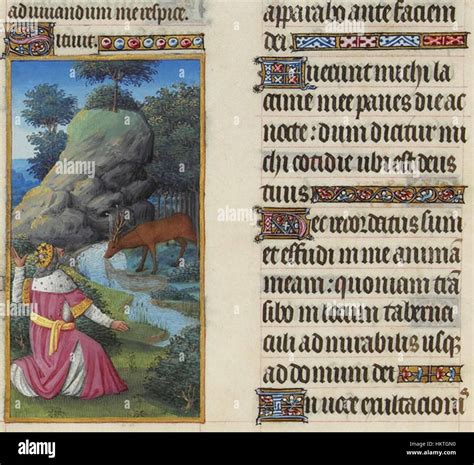 adiuuandum me respice.
Sitiuit.
apparebo ante faciem
dei
Fuerunt michi la
crime mee panes die ac
nocte: dum dicitur mi
chi cotidie ubi est deus
tuus
Hec recordatus sum
et effudi in me animam
meam: quoniam trã
sibo in locum taberna
culi admirabilis usqȝ
ad domum dei
In uoce exultacionis
alamy
alamy
alamy
alamy
alamy
Image ID: HKTGN0
www.alamy.com